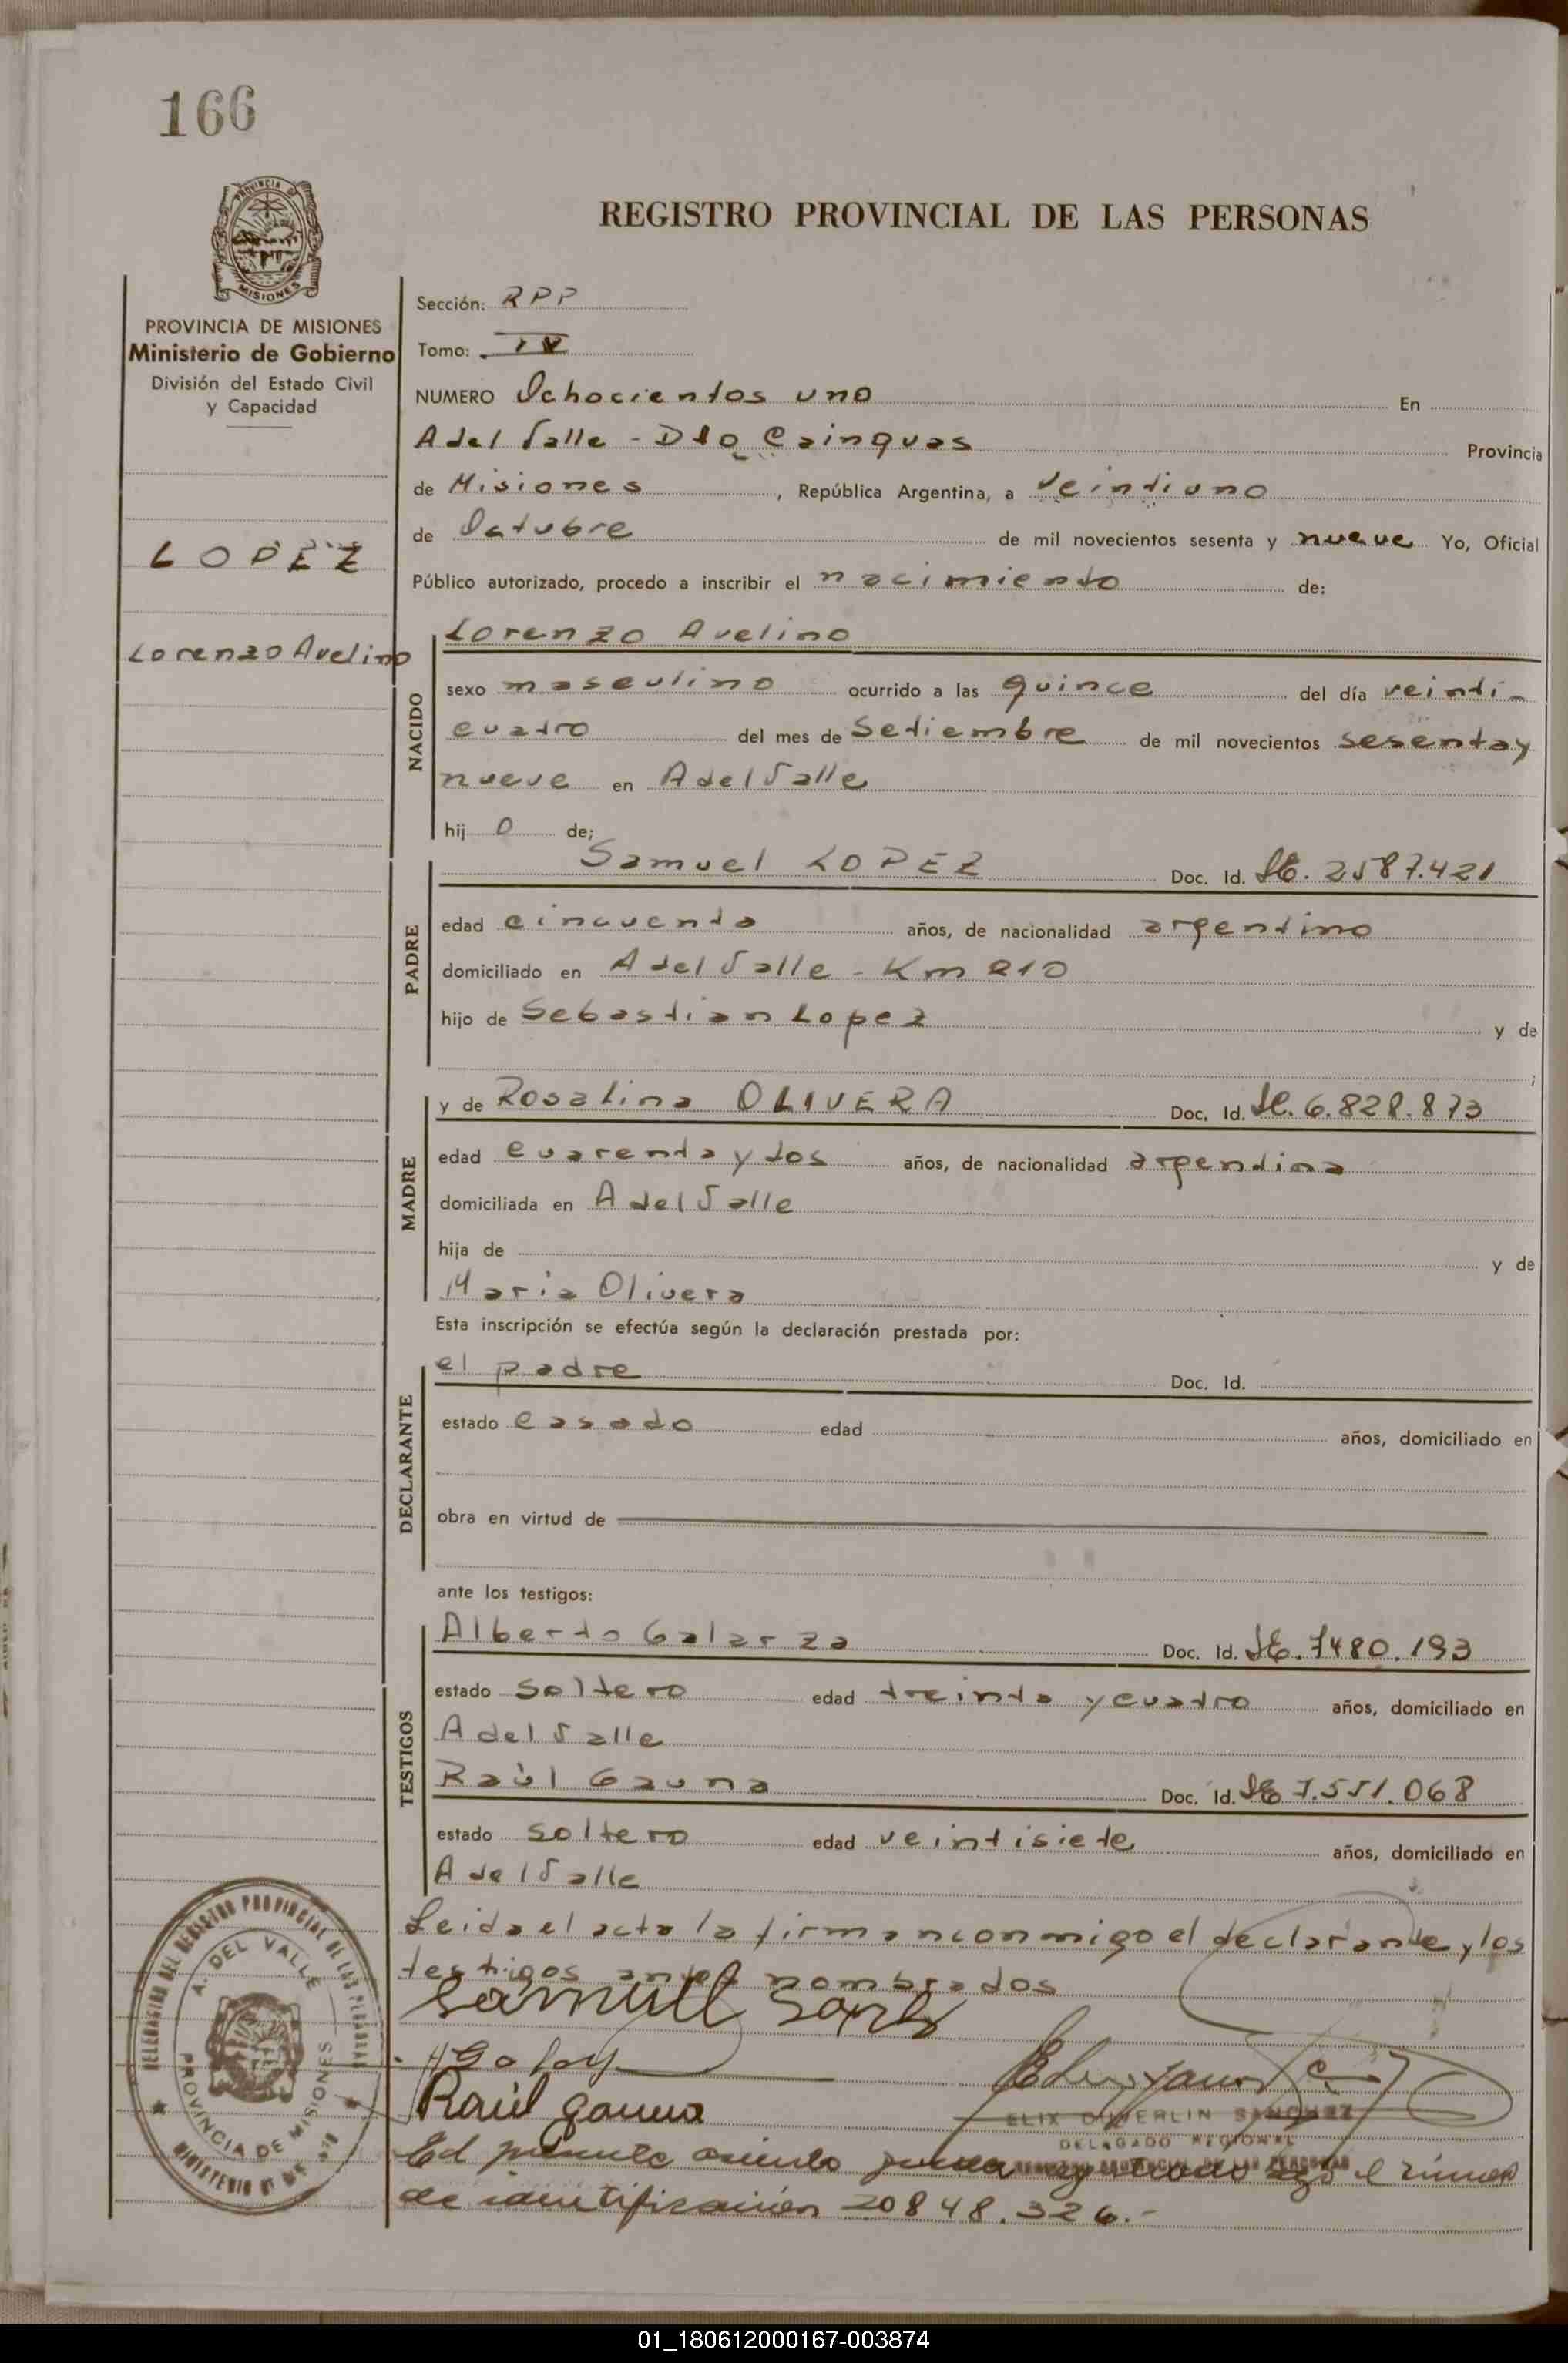 166
PROVINCIA DE
MISIONES
REGISTRO PROVINCIAL DE LAS PERSONAS
PROVINCIA DE MISIONES
Ministerio de Gobierno
División del Estado Civil
y Capacidad
LOPEZ
Lorenzo Avelino
Sección: RPP
Tomo: IV
NUMERO Ochocientos uno En
A del Valle - Dto Cainguas Provincia
de Misiones, República Argentina, a veintiuno
de Octubre de mil novecientos sesenta y nueve Yo, Oficial
Público autorizado, procedo a inscribir el nacimiento de:
NACIDO
Lorenzo Avelino
sexo masculino ocurrido a las quince del día veinti-
cuatro del mes de Setiembre de mil novecientos sesenta y
nueve en A del Valle
hij o de:
PADRE
Samuel LOPEZ Doc. Id. LE. 2587.421
edad cincuenta años, de nacionalidad argentino
domiciliado en A del Valle - Km 210
hijo de Sebastian Lopez y de
;
MADRE
y de Rosalina OLIVERA Doc. Id. LC. 6.828.873
edad cuarenta y dos años, de nacionalidad argentina
domiciliada en A del Valle
hija de y de
Maria Olivera
Esta inscripción se efectúa según la declaración prestada por:
DECLARANTE
el padre Doc. Id.
estado casado edad años, domiciliado en
obra en virtud de
ante los testigos:
TESTIGOS
Alberto Galarza Doc. Id. LE. 7480.193
estado soltero edad treinta y cuatro años, domiciliado en
A del Valle
Raúl Gauna Doc. Id. LE 7.551.068
estado soltero edad veintisiete años, domiciliado en
A del Valle
Leida el acta la firman conmigo el declarante y los
testigos antes nombrados
Samuel
Raúl gauna
SANCHEZ
DELEGADO REGIONAL
REGISTRO PROVINCIAL DE LAS PERSONAS
DELEGACION DEL REGISTRO PROVINCIAL DE LAS PERSONAS
A. DEL VALLE
PROVINCIA DE MISIONES
MINISTERIO DE
el número
de identificación 20848.326.-
01_180612000167-003874